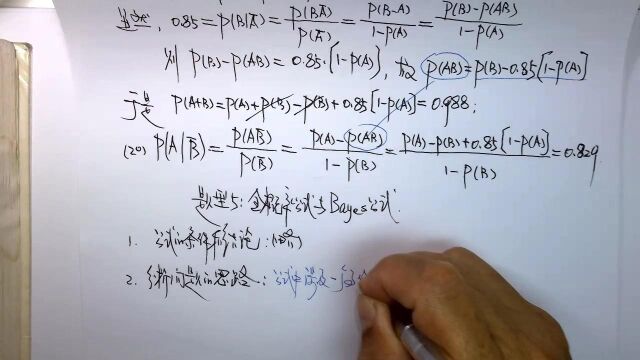 0.85 = P(B|Ā) = P(BĀ)/P(Ā) = P(B-A)/(1-P(A)) = (P(B)-P(AB))/(1-P(A))
则 P(B)-P(AB) = 0.85·[1-P(A)], 故 P(AB) = P(B)-0.85[1-P(A)]
于是 P(A+B) = P(A)+P(B)-P(B)+0.85[1-P(A)] = 0.988;
(20) P(A|B̄) = P(AB̄)/P(B̄) = (P(A)-P(AB))/(1-P(B)) = (P(A)-P(B)+0.85[1-P(A)])/(1-P(B)) = 0.829
题型5: 全概率公式与Bayes公式.
1. 公式的条件和结论:
2. 的思路: